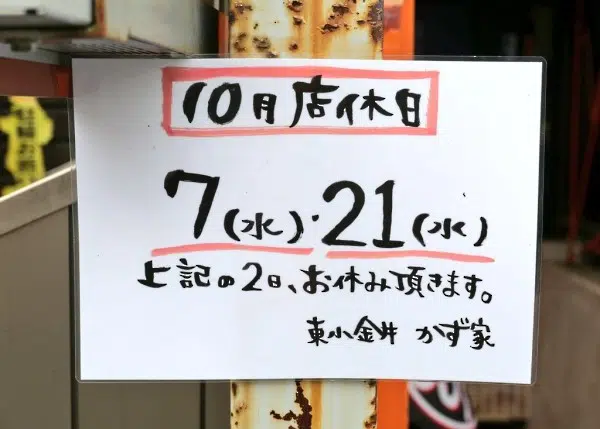 10月店休日
7(水)・21(水)
上記の2日、お休み頂きます。
東小金井 かず家